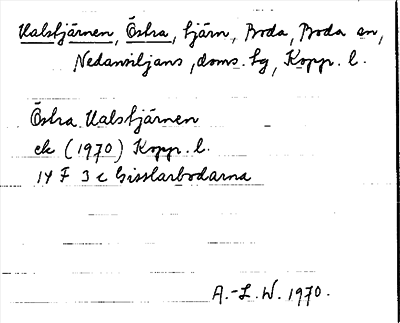 Ualstjärnen, Östra, tjärn, Boda, Boda sn,
Nedansiljans, doms. hg, Kopp. l.
Östra Ualstjärnen
ek (1970) Kopp. l.
14 F 3 c Gisslarbodarna
A.-L. W. 1970.